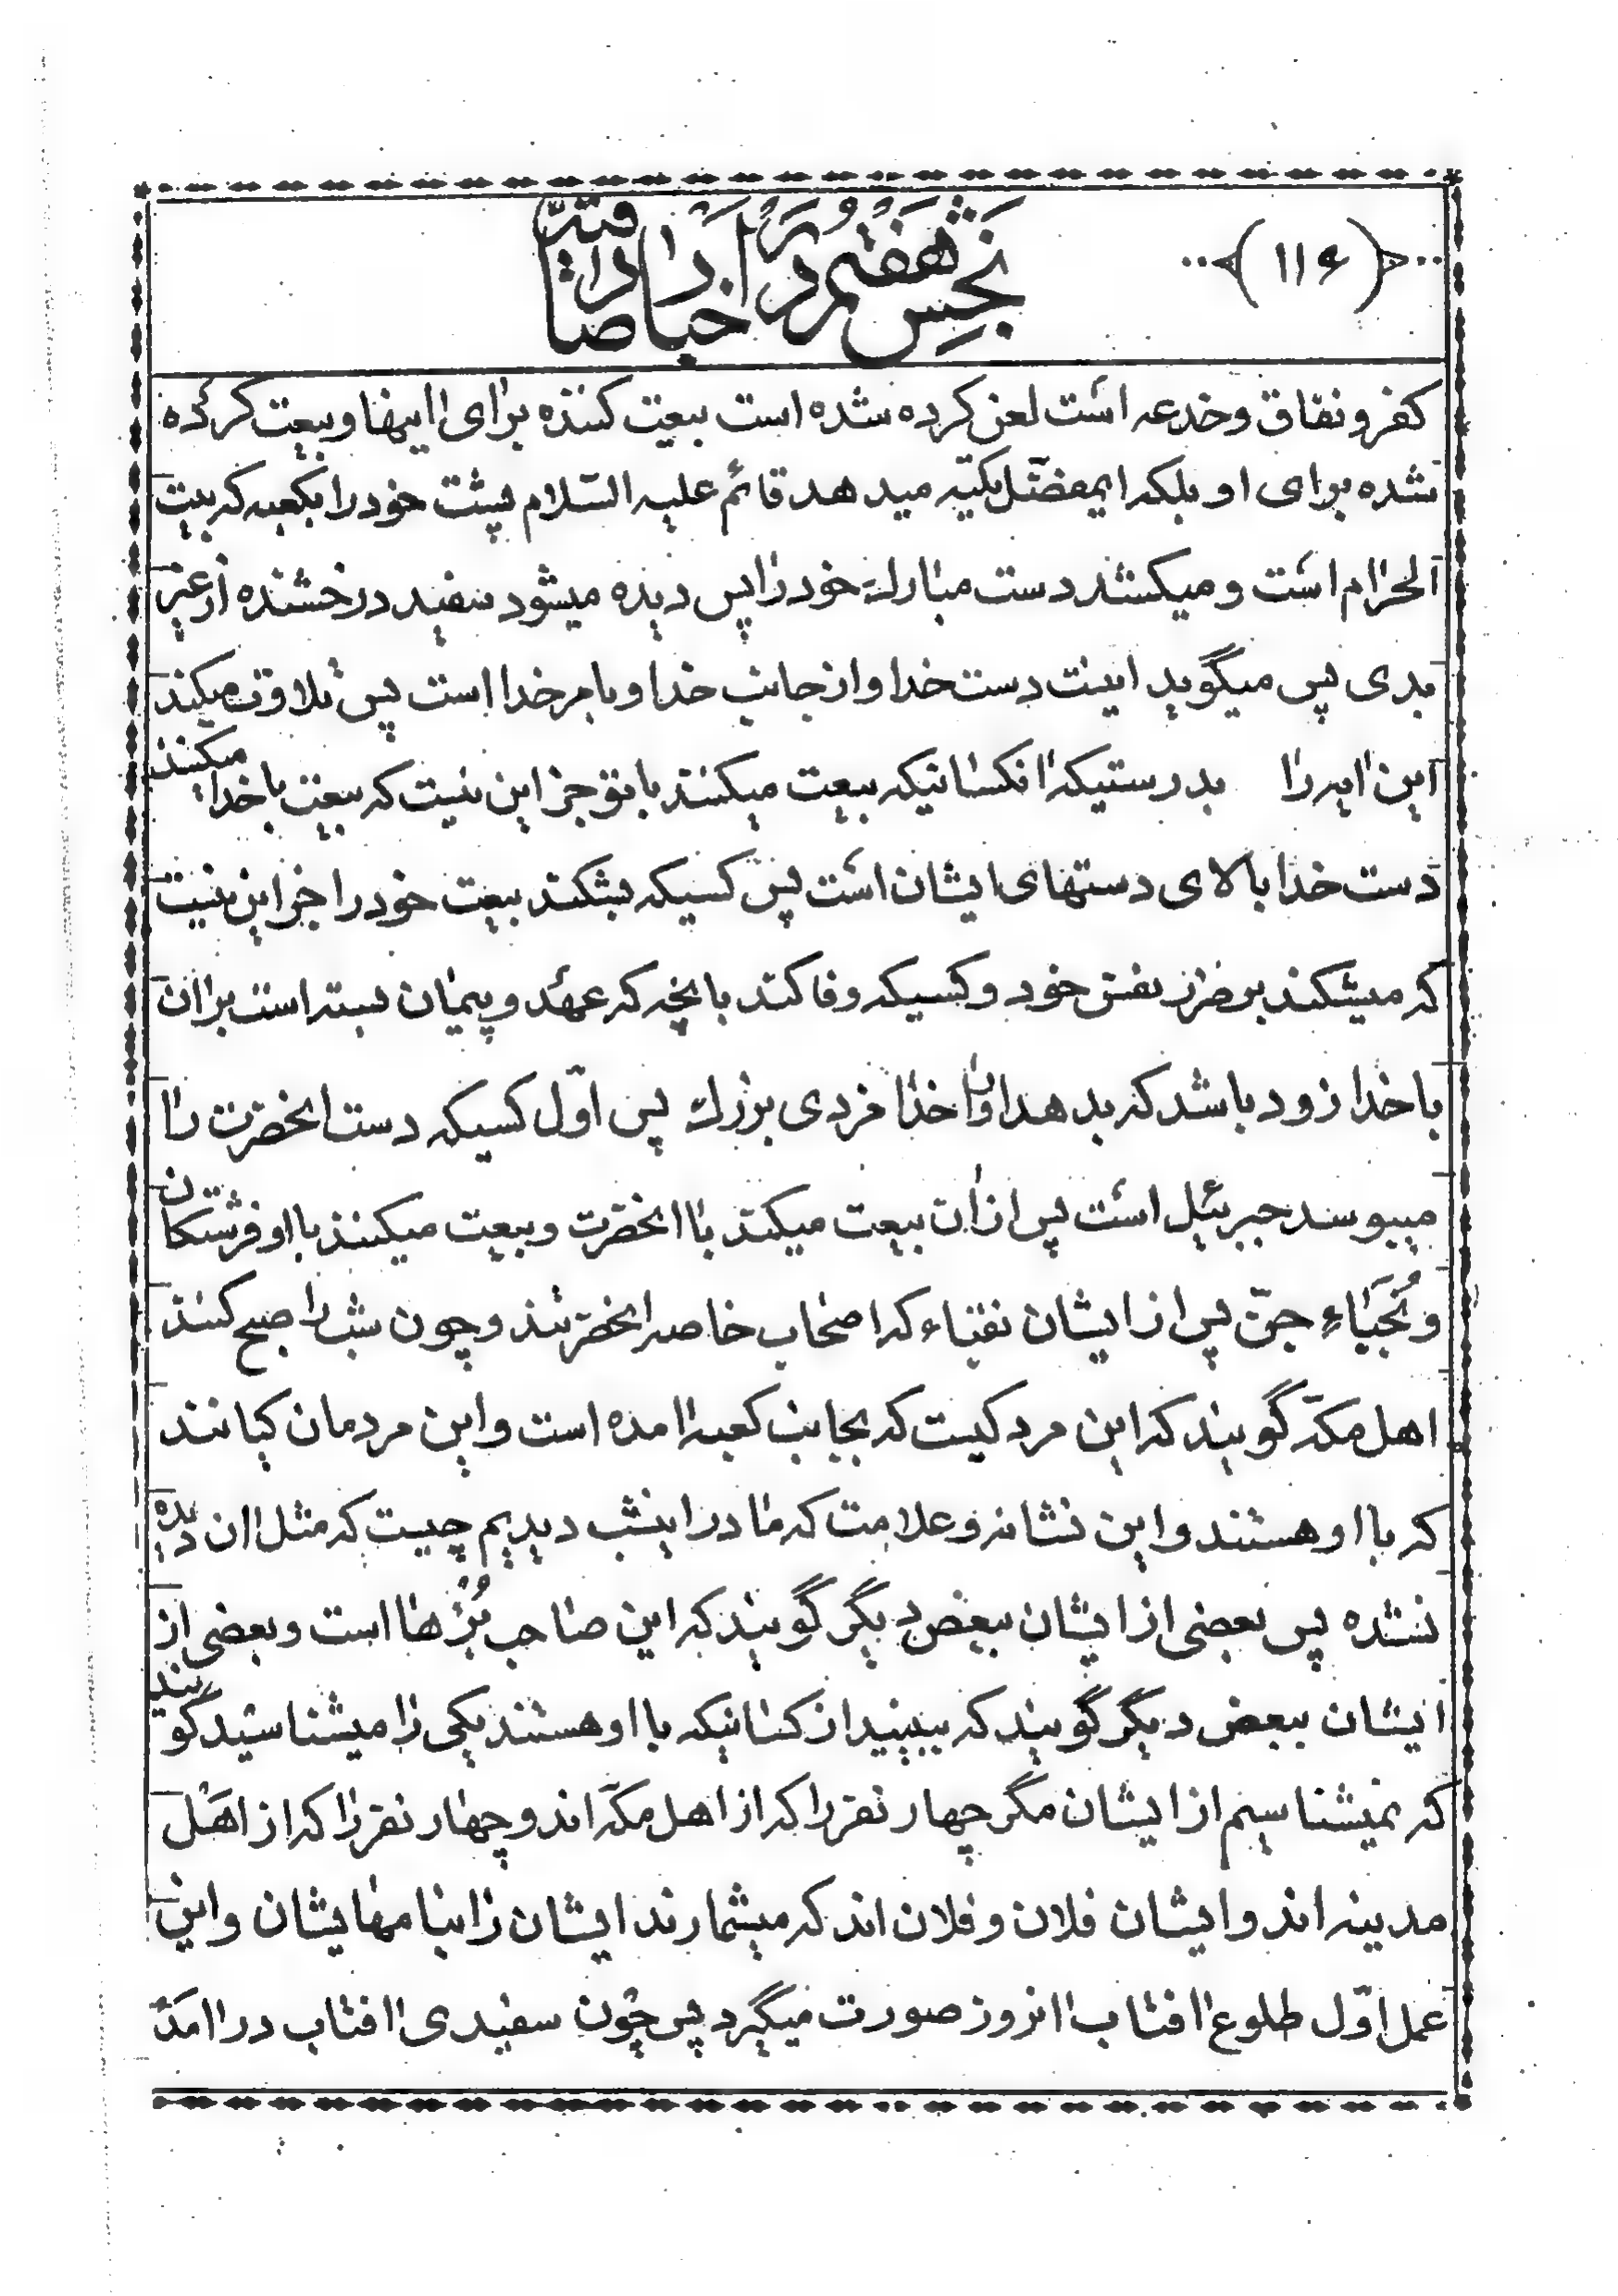 (۱۱۶)
بخش هفتم در اخبار صادقیه
کفر و نفاق و خدعه است لعن کرده شده است بیعت کننده برای اینها و بیعت کرده
شده برای او بلکه ایمفضّل تکیه میدهد قائم علیه السّلام پشت خود را بکعبه که بیت
الحرام است و میکشد دست مبارک خود را پس دیده میشود سفید درخشنده از غیر
بدی پس میگوید اینست دست خدا و از جانب خدا و بامر خدا است پس تلاوت میکند
این ایه را بدرستیکه انکسانیکه بیعت میکنند با تو جز این نیست که بیعت با خدا میکنند
دست خدا بالای دستهای ایشان است پس کسیکه بشکند بیعت خود را جز این نیست
که میشکند بر ضرر نفس خود و کسیکه وفا کند بانچه که عهد و پیمان بسته است بران
با خدا زود باشد که بدهد او را خدا مزدی بزرک پس اوّل کسیکه دست انحضرت را
میبوسد جبرئیل است پس از ان بیعت میکند با انحضرت و بیعت میکنند با او فرشتکان
و نُجَباءِ جنّ پس از ایشان نقباء که اصحاب خاصه انحضرتند و چون شب را صبح کنند
اهل مکّه گویند که این مرد کیست که بجانب کعبه امده است و این مردمان کیانند
که با او هستند و این نشانه و علامت که ما در اینشب دیدیم چیست که مثل ان دیده
نشده پس بعضی از ایشان ببعض دیگر گویند که این صاحب بُزُها است و بعضی از
ایشان ببعض دیگر گویند که ببینید از کسانیکه با او هستند یکی را میشناسید گویند
که نمیشناسیم از ایشان مگر چهار نفر را که از اهل مکّه اند و چهار نفر را که از اهل
مدینه اند و ایشان فلان و فلان اند که میشمارند ایشان را بنامهایشان و این
عمل اوّل طلوع افتاب انروز صورت میگیرد پس چون سفیدی افتاب در امَد